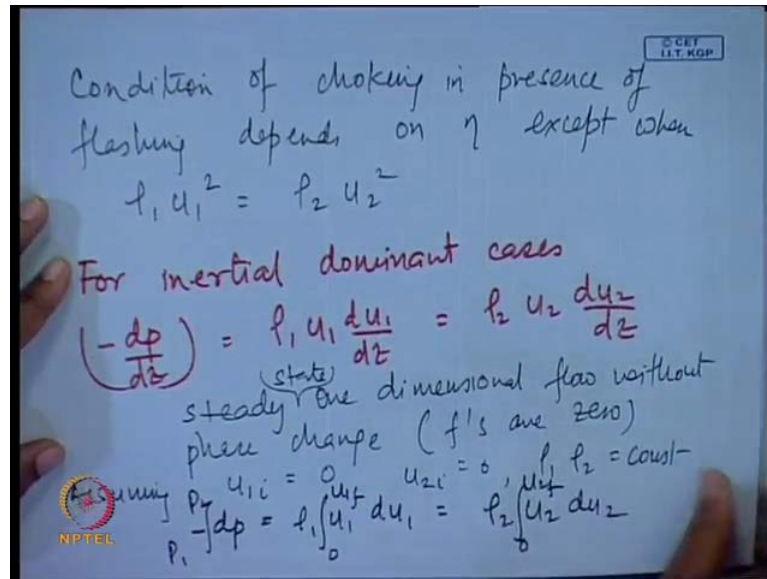 © CET
I.I.T. KGP
Condition of choking in presence of
flashing depends on η except when
ρ₁ u₁² = ρ₂ u₂²
For inertial dominant cases
(-dp/dz) = ρ₁ u₁ du₁/dz = ρ₂ u₂ du₂/dz
(state)
steady one dimensional flow without
phase change (f's are zero)
Assuming u₁ᵢ = 0, u₂ᵢ = 0, ρ₁ ρ₂ = const
-∫dp = ρ₁ ∫₀ u₁ du₁ = ρ₂ ∫₀ u₂ du₂
NPTEL